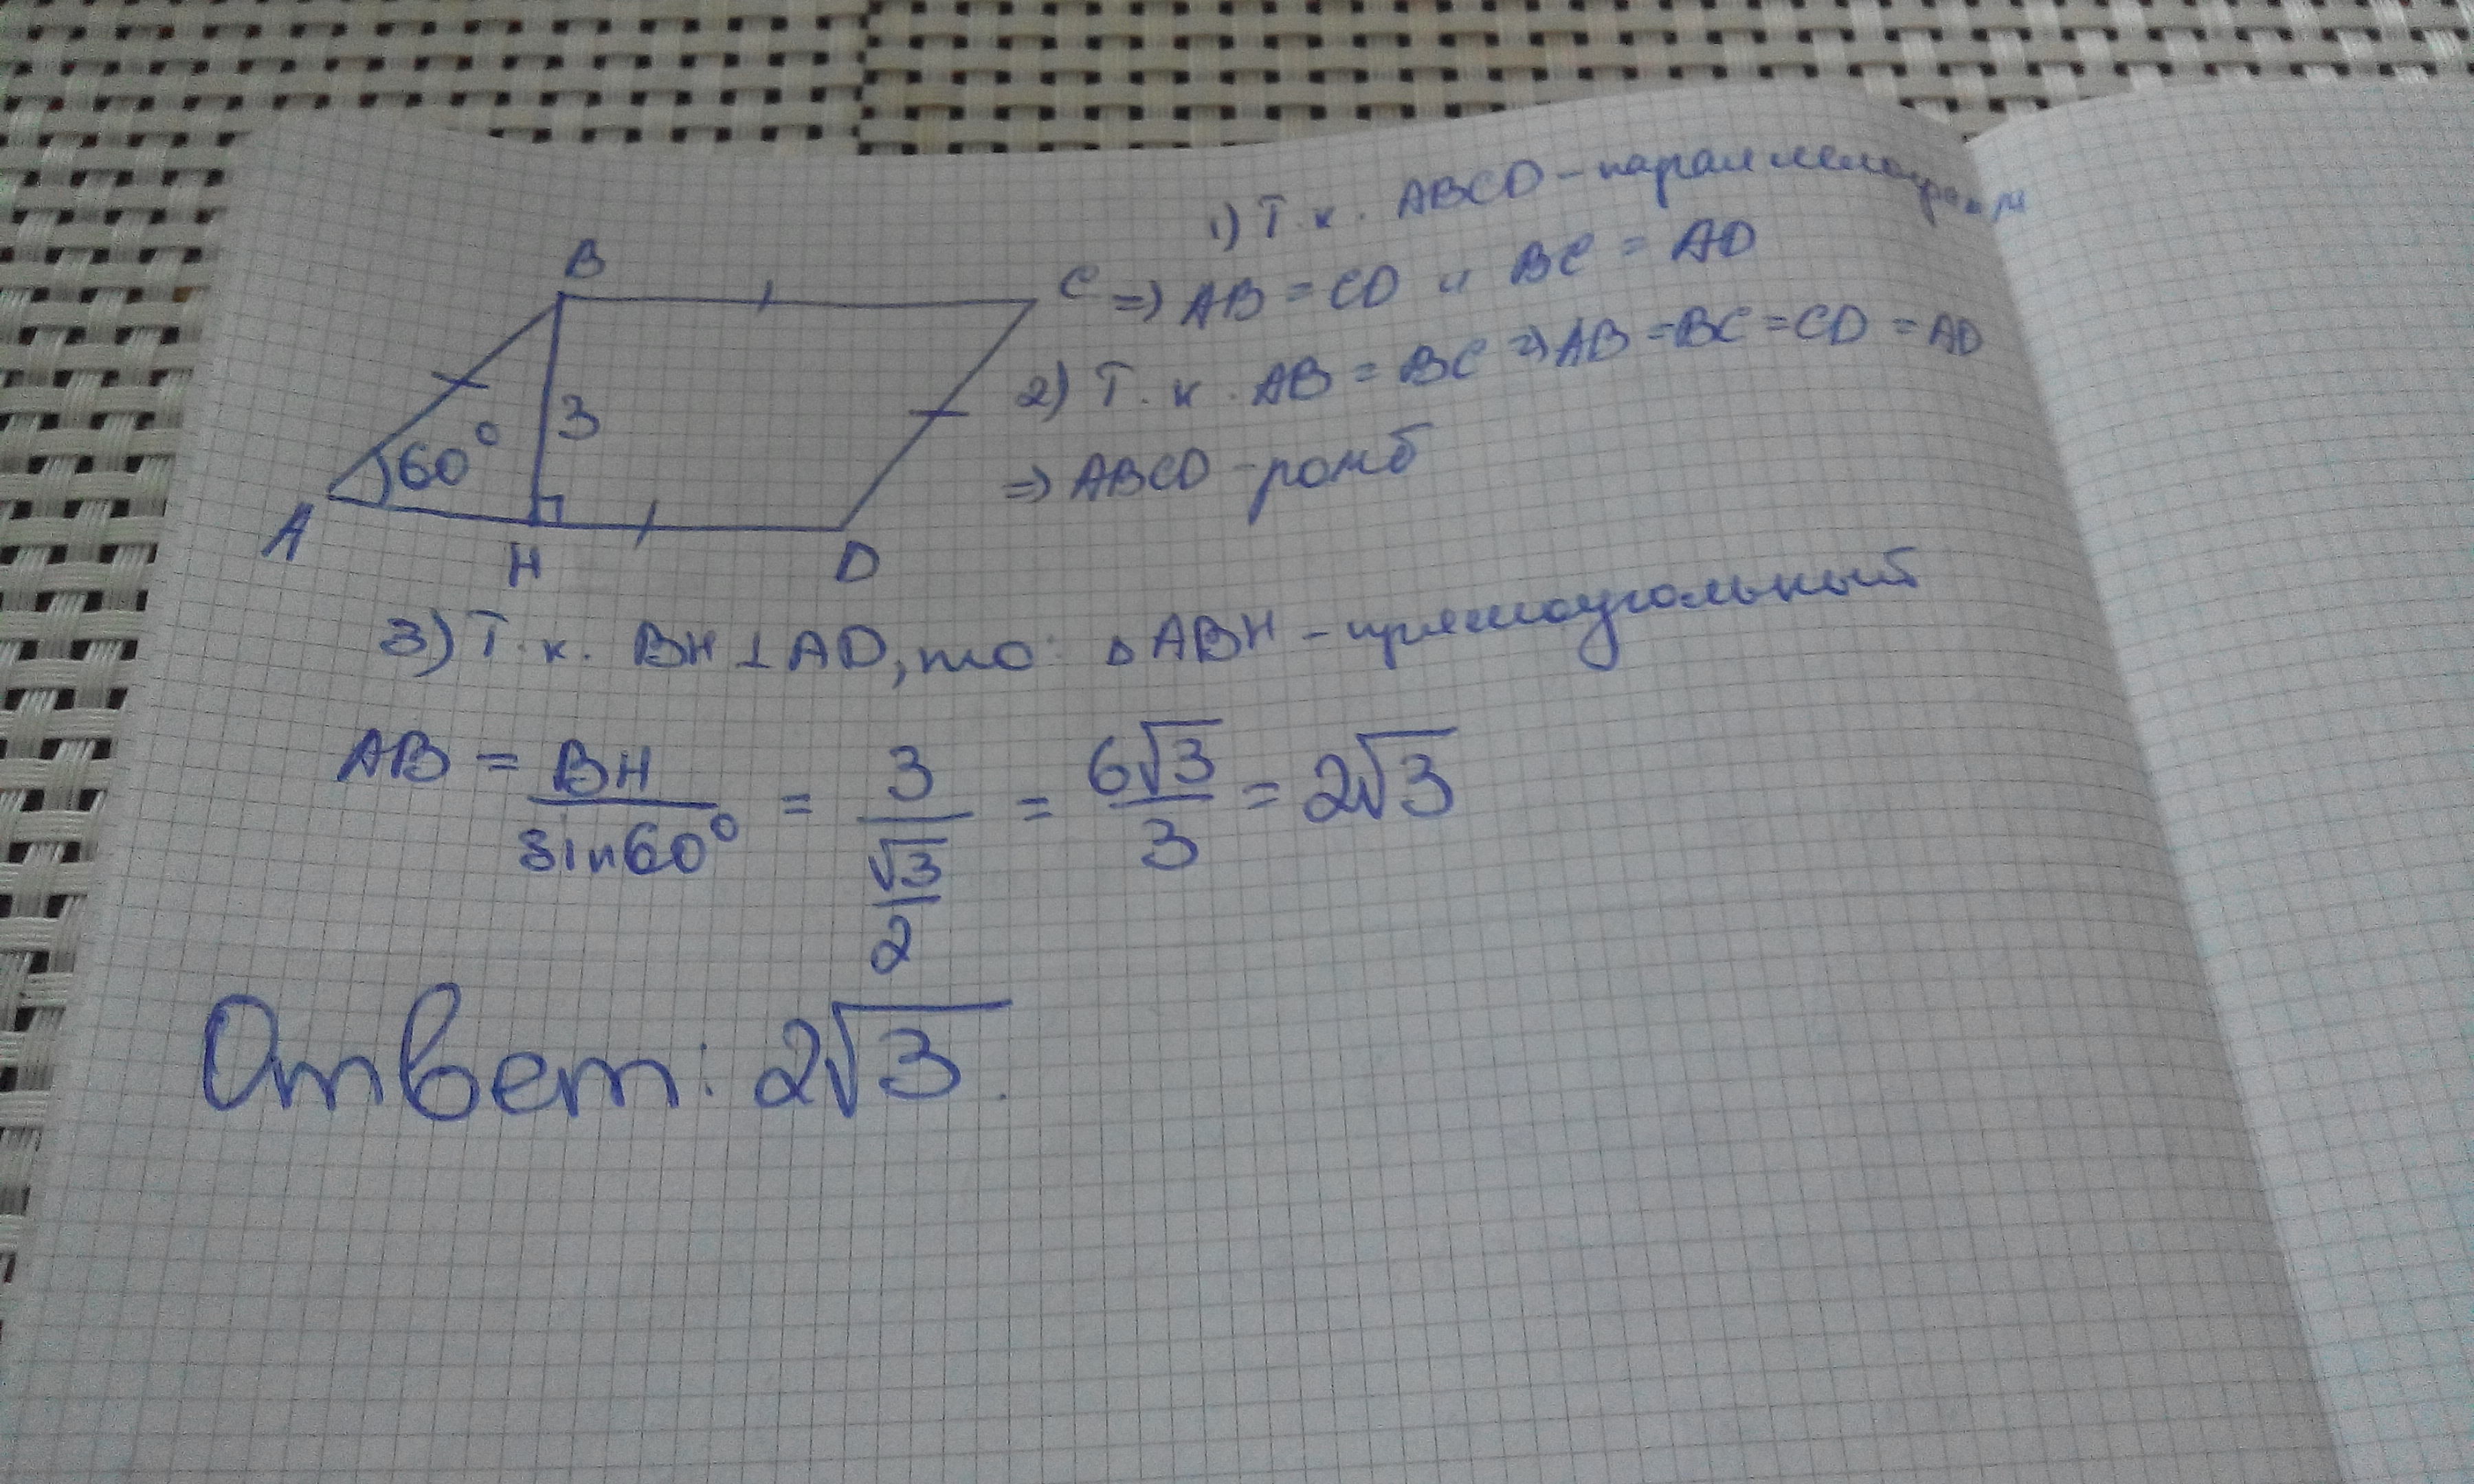 B
C
3
60°
A
H
D
1) Т.к. ABCD – параллелограмм
=> AB = CD и BC = AD
2) Т.к. AB = BC => AB = BC = CD = AD
=> ABCD – ромб
3) Т.к. BH ⊥ AD, то ▵ ABH – прямоугольный
AB = BH / sin60° = 3 / (√3 / 2) = 6√3 / 3 = 2√3
Ответ: 2√3.